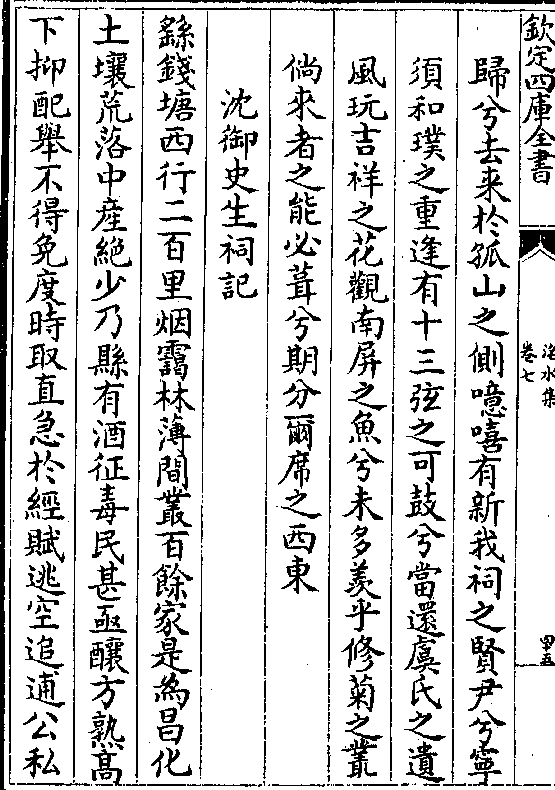 欽定四庫全書
洺水集
卷七
歸兮去来於孤山之側噫嘻有新我祠之賢尹兮寧
須和璞之重逢有十三弦之可鼓兮當還虞氏之遺
風玩吉祥之花觀南屏之魚兮未多羨乎修菊之叢
倘來者之能必葺兮期分爾席之西東
沈御史生祠記
繇錢塘西行二百里烟靄林薄間叢百餘家是為昌化
土壤荒落中産絶少乃縣有酒征毒民甚亟釀方熟髙
下抑配舉不得免度時取直急於經賦逃空追逋公私